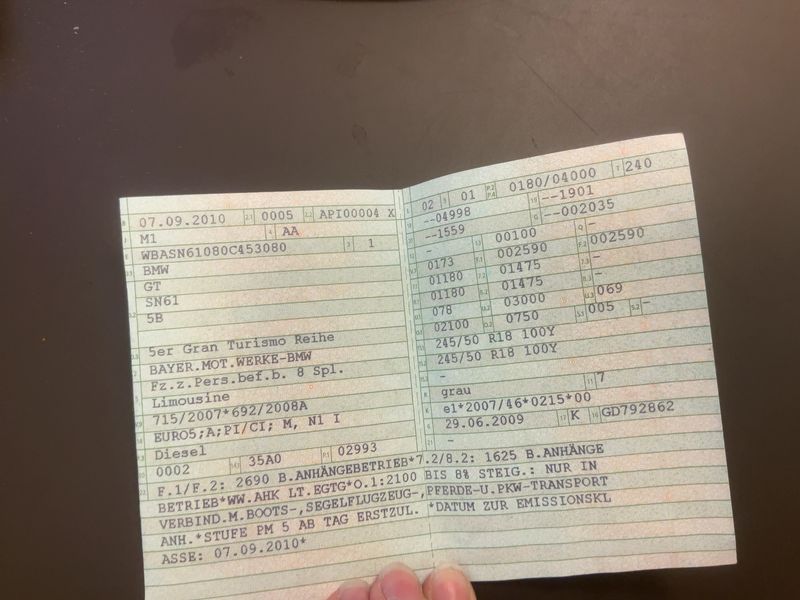 07.09.2010 0005 API00004 X
M1 AA
WBASN61080C453080 1
BMW
GT
SN61
5B
5er Gran Turismo Reihe
BAYER.MOT.WERKE-BMW
Fz.z.Pers.bef.b. 8 Spl.
Limousine
715/2007*692/2008A
EURO5;A;PI/CI; M, N1 I
Diesel
0002 35A0 02993
02 01 0180/04000 240
--04998 --1901
--1559 --002035
- 00100 -
0173 002590 002590
01180 01475 -
01180 01475 -
078 03000 069
02100 0750 005 -
245/50 R18 100Y
245/50 R18 100Y
-
grau 7
e1*2007/46*0215*00
29.06.2009 K GD792862
-
F.1/F.2: 2690 B.ANHÄNGEBETRIEB*7.2/8.2: 1625 B.ANHÄNGE
BETRIEB*WW.AHK LT.EGTG*O.1:2100 BIS 8% STEIG.: NUR IN
VERBIND.M.BOOTS-,SEGELFLUGZEUG-,PFERDE-U.PKW-TRANSPORT
ANH.*STUFE PM 5 AB TAG ERSTZUL. *DATUM ZUR EMISSIONSKL
ASSE: 07.09.2010*